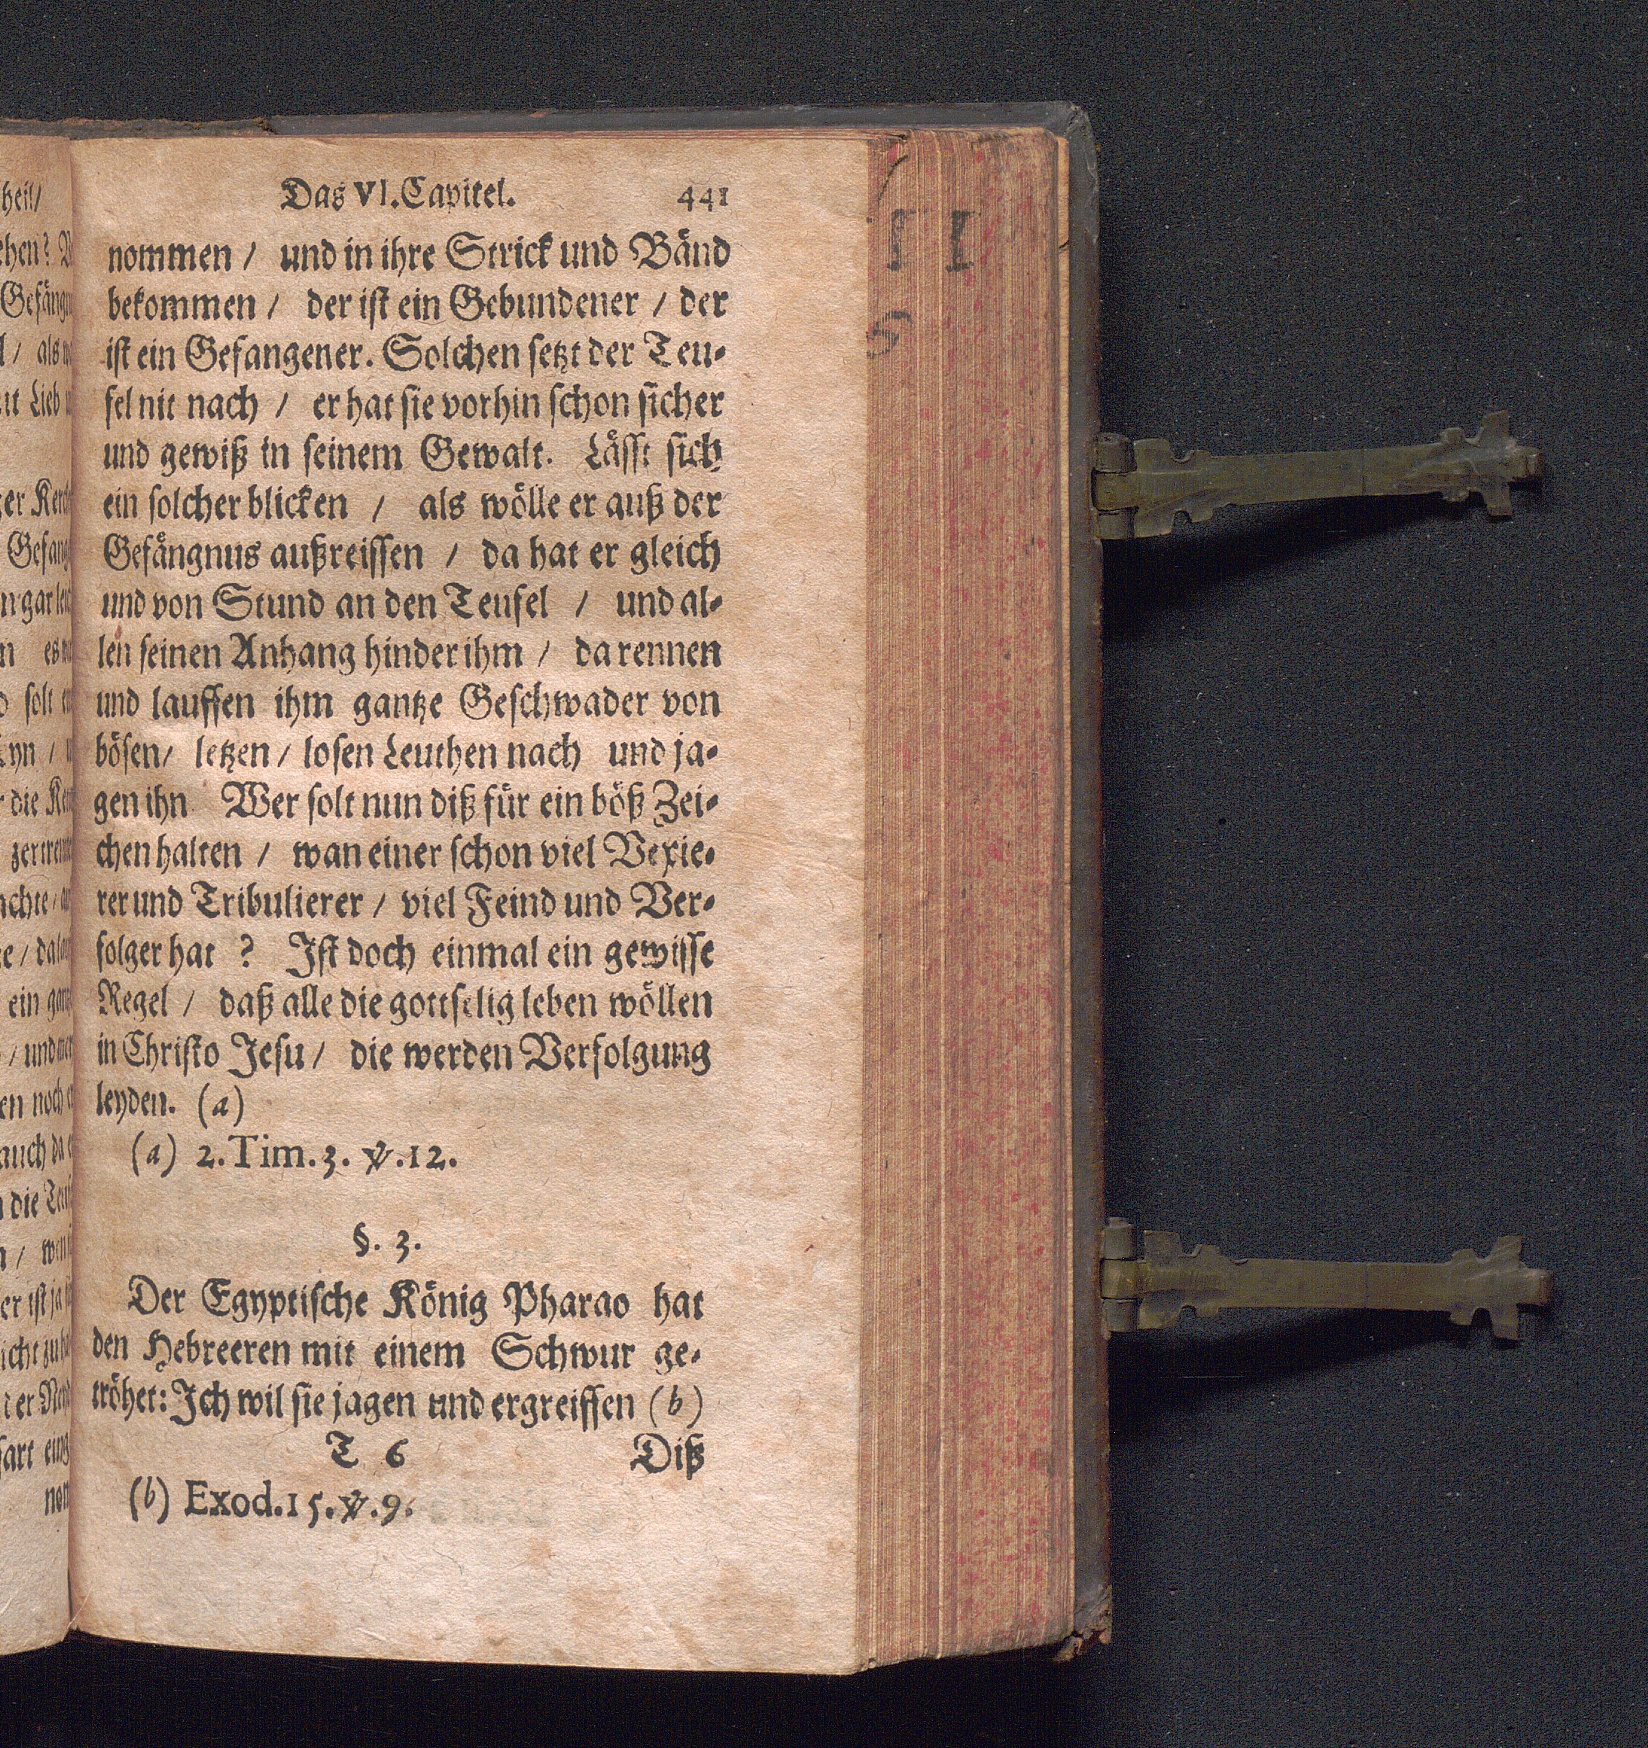 Das VI. Capitel. 441
nommen / und in ihre Strick und Bänd
bekommen / der ist ein Gebundener / der
ist ein Gefangener. Solchen setzt der Teu-
fel nit nach / er hat sie vorhin schon sicher
und gewiß in seinem Gewalt. Lässt sich
ein solcher blicken / als wölle er auß der
Gefängnus außreissen / da hat er gleich
und von Stund an den Teufel / und al-
len seinen Anhang hinder ihm / da rennen
und lauffen ihm gantze Geschwader von
bösen / letzen / losen Leuthen nach und ja-
gen ihn Wer solt nun diß für ein böß Zei-
chen halten / wan einer schon viel Vexie-
rer und Tribulierer / viel Feind und Ver-
folger hat ? Ist doch einmal ein gewisse
Regel / daß alle die gottselig leben wöllen
in Christo Jesu / die werden Verfolgung
leyden. (a)
(a) 2. Tim. 3. ℣. 12.
§. 3.
Der Egyptische König Pharao hat
den Hebreeren mit einem Schwur ge-
tröhet: Ich wil sie jagen und ergreiffen (b)
T 6 Diß
(b) Exod. 15. ℣. 9.